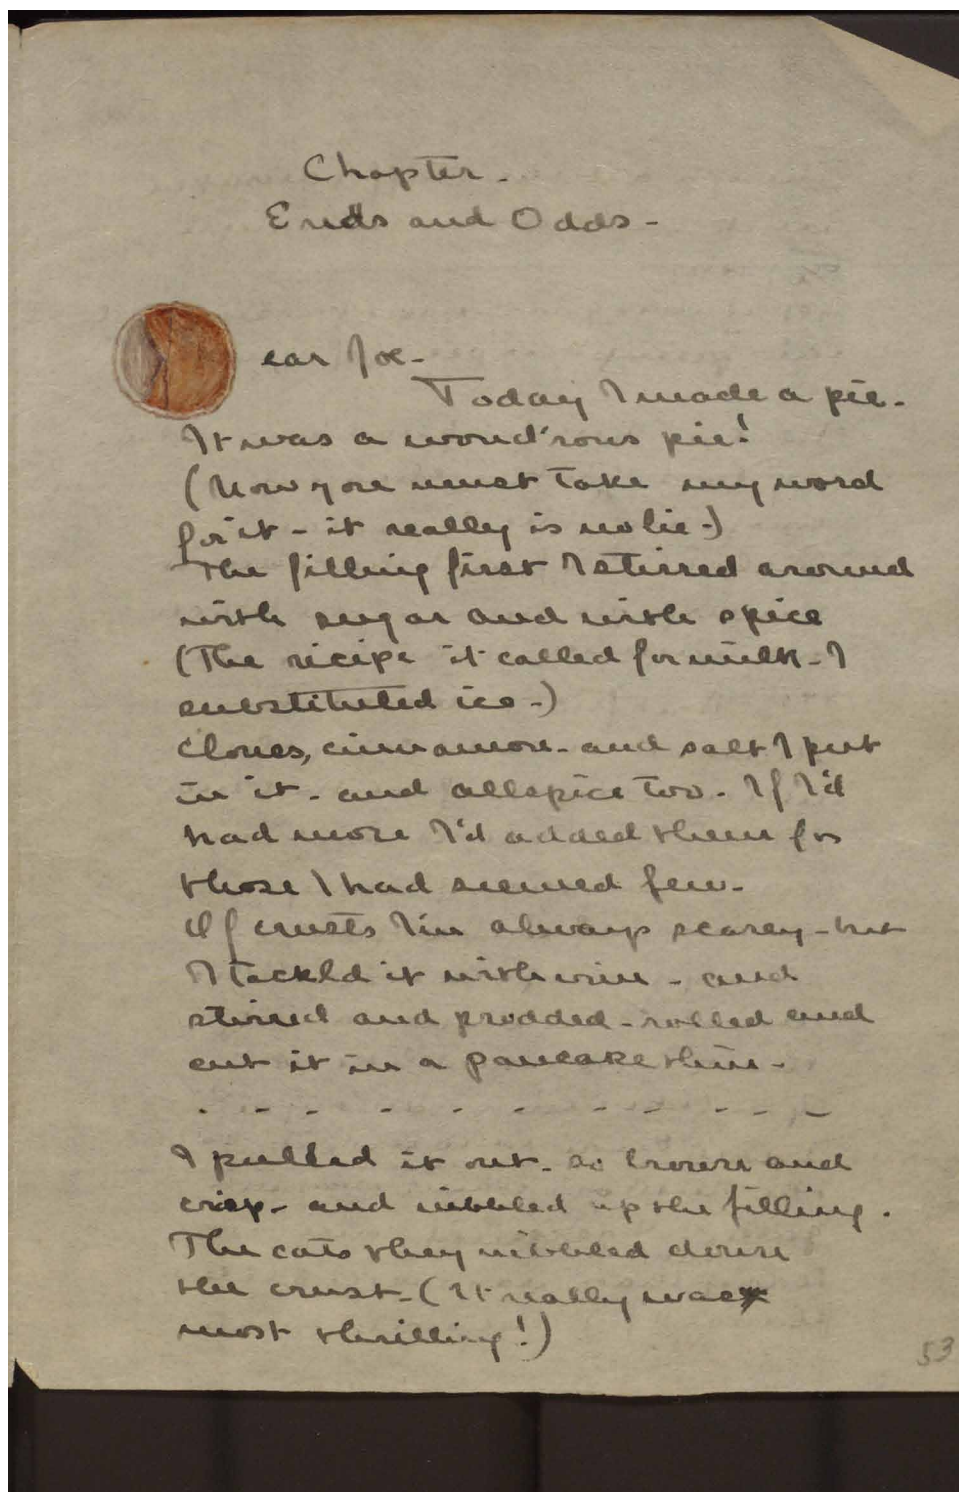 Chapter.
Ends and Odds -
Dear Joe -
Today I made a pie.
It was a wond'rous pie!
(Now you must take my word
for it - it really is no lie -)
The filling first I stirred around
with sugar and with spice
(The recipe it called for milk - I
substituted ice -)
Cloves, cinnamon - and salt I put
in it - and allspice too. If I'd
had more I'd added them for
those I had seemed few -
Of crusts I'm always scarey - but
I tackld it with vim - and
stirred and prodded - rolled and
cut it in a pancake thin -
. - - - - - - - - - - -
I pulled it out - so brown and
crisp - and nibbled up the filling.
The cats they nibbled down
the crust - (It really was
most thrilling!)
53